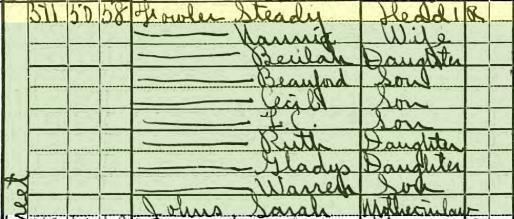 571 50 58 Fowler Steady Head 1 R
Nannie Wife
Beulah Daughter
Beauford Son
Cecil Son
L.C. Son
Ruth Daughter
Gladys Daughter
Warren Son
Johns Sarah Motherinlaw
reet